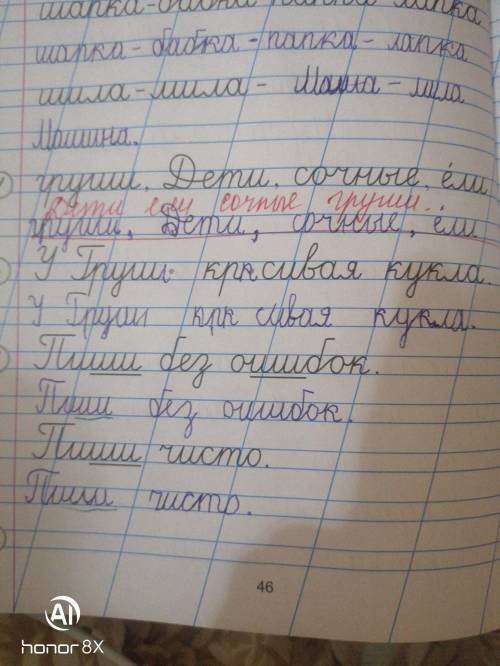 шапка-бабка-папка-лапка
шапка-бабка-папка-лапка
шила-мила- Маша-мила
Машина.
груши, Дети, сочные, е́ли
Дети ели сочные груши.
груши, Дети, сочные, е́ли
У Груши красивая кукла.
У Груши красивая кукла.
Пиши без ошибок.
Пиши без ошибок.
Пиши чисто.
Пиши чистр.
46
AI
honor 8X